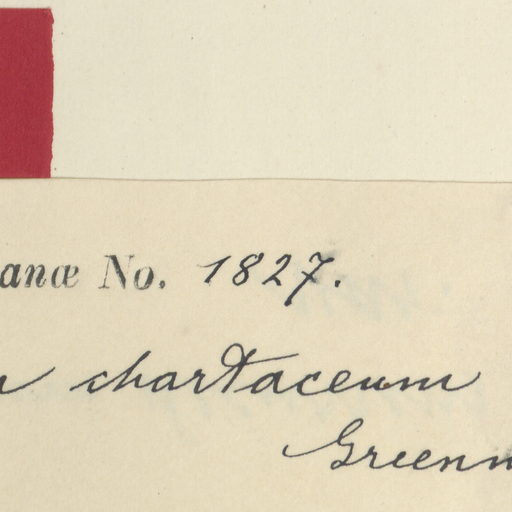 anæ No. 1827.
chartaceum
Greenm